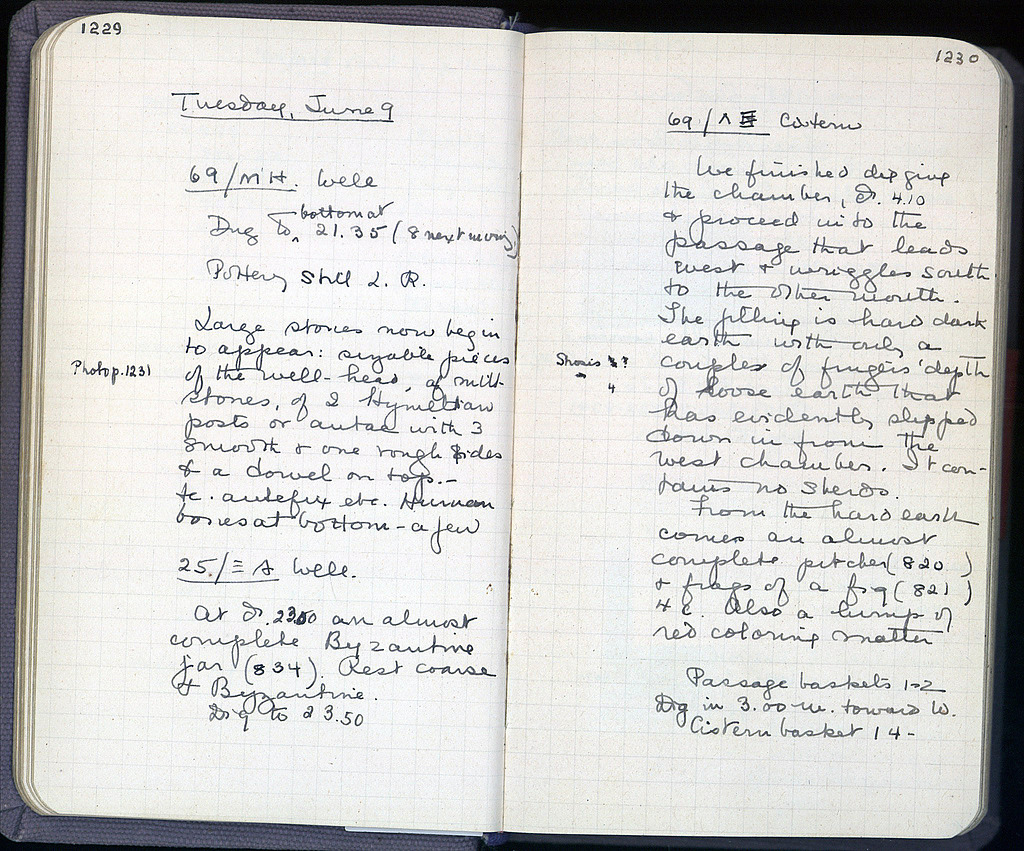 1229
Tuesday, June 9
69/ΜΗ. Well
Dug to bottom at 21.35 (8 next morning)
Pottery still L. R.
Large stones now begin
to appear: sizable pieces
Photo p. 1231
of the well-head, of mill-
stones, of 2 Hymettian
posts or antae with 3
smooth & one rough sides
& a dowel on top. –
tc. antefix etc. Human
bones at bottom – a few
25./Ξ Δ Well.
At d. 23.50 an almost
complete Byzantine
jar (834). Rest coarse
& Byzantine.
Dig to 23.50
1230
69/Λ Ξ Cistern
We finished digging
the chamber, d. 4.10
& proceed into the
passage that leads
west & wriggles south
to the other mouth.
The filling is hard dark
earth with only a
couples of fingers' depth
of loose earth that
4
has evidently slipped
down in from the
west chamber. It con-
tains no sherds.
From the hard earth
comes an almost
complete pitcher (820 )
& frags of a fig (821 )
4 c. Also a lump of
red coloring matter
Passage baskets 1-2
Dig in 3.00 m. toward W.
Cistern basket 14 -